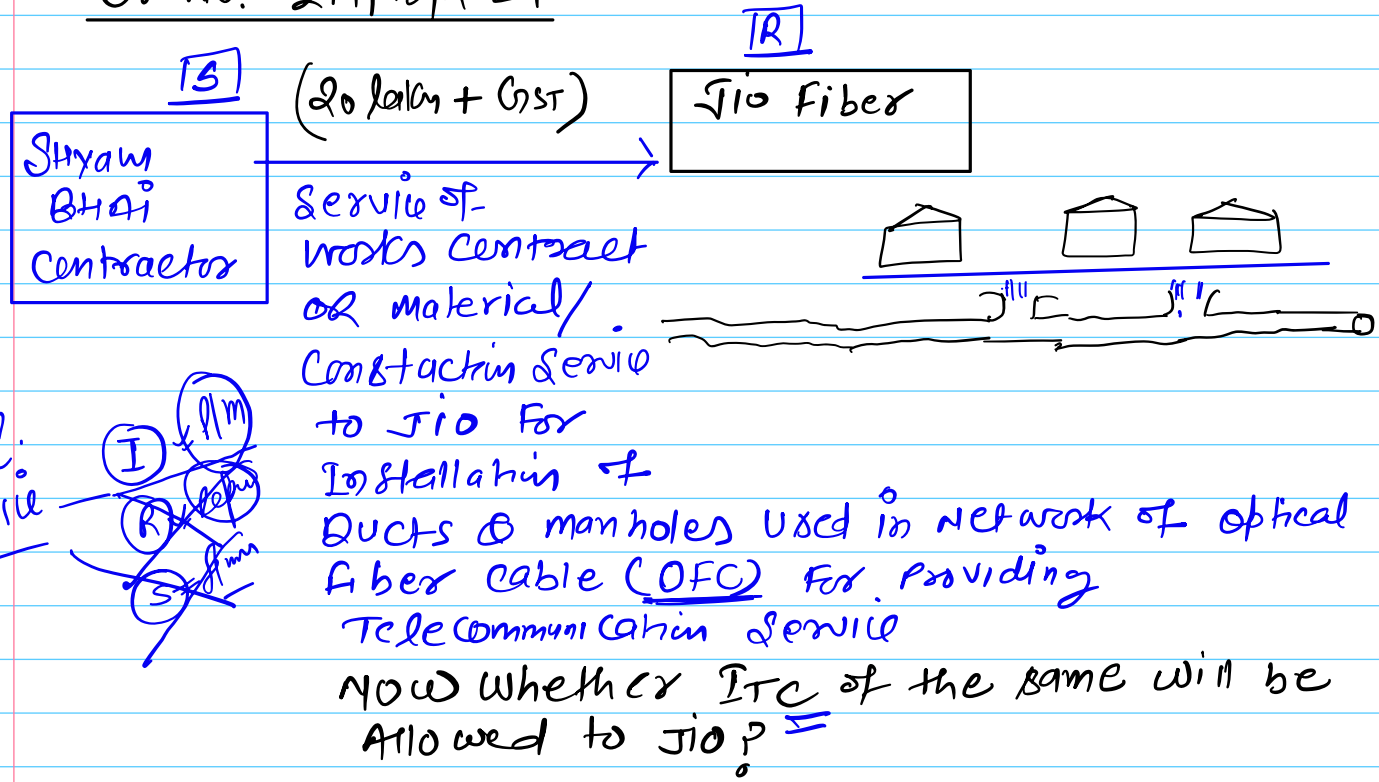 R
S
(20 lakh + GST)
Jio Fiber
Shyam
BHAi
Contractor
Service of
works contract
OR material/
Constactin Service
to Jio For
Installation of
Ducts & manholes used in Network of optical
fiber cable (OFC) For Providing
Telecommunication Service
I
P/M
R
S
Now whether ITC of the same will be
Allowed to Jio?